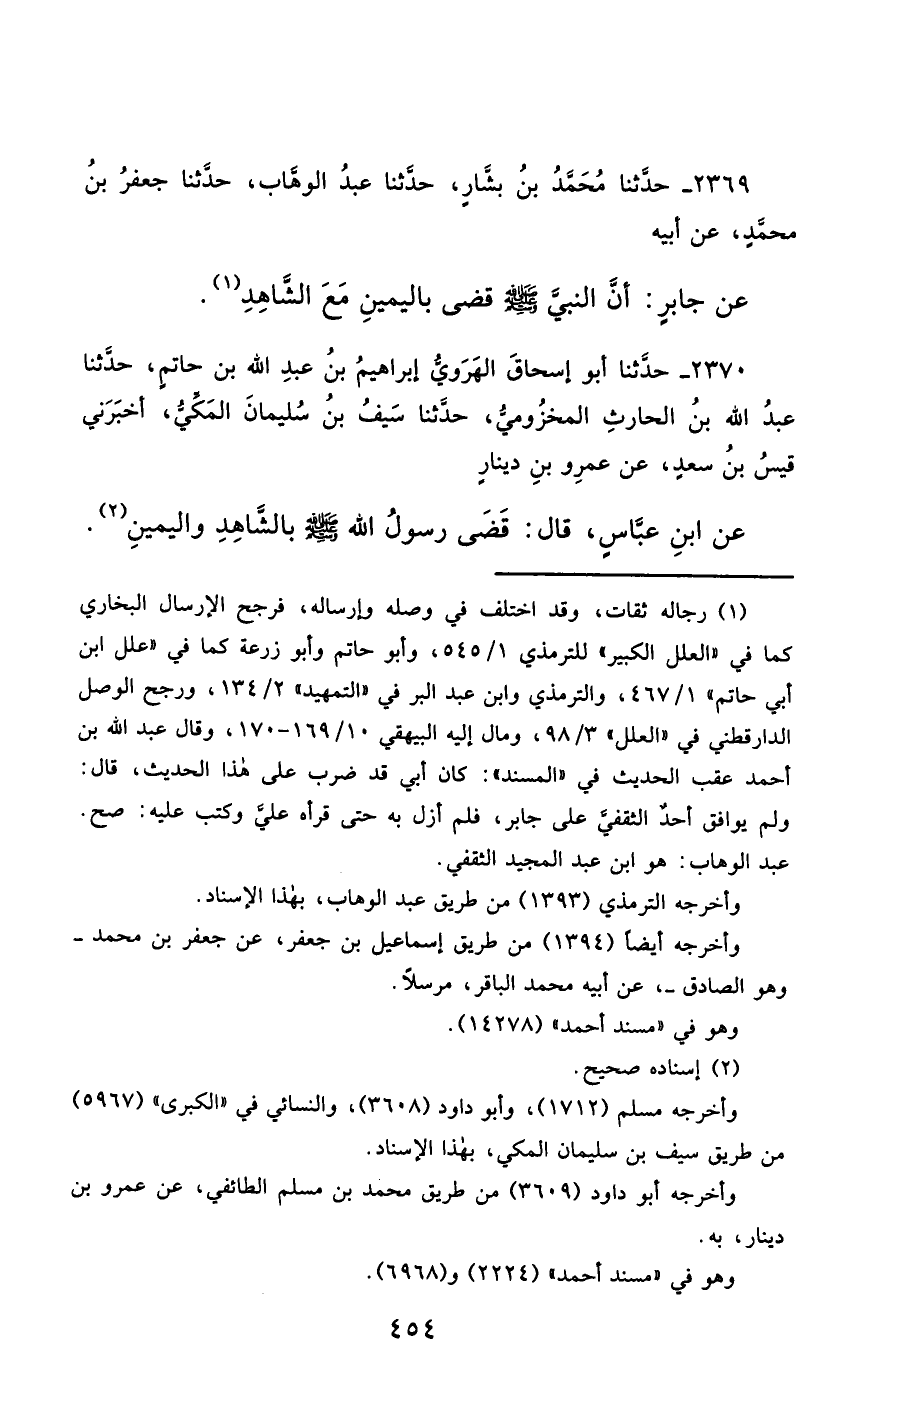 ٢٣٦٩ـ حدَّثنا مُحَمَّدُ بنُ بشَّارٍ، حدَّثنا عبدُ الوهَّاب، حدَّثنا جعفرُ بنُ
محمَّدٍ، عن أبيه
عن جابرٍ: أنَّ النبيَّ ﷺ قضى باليمينِ مَعَ الشَّاهِدِ(١).
٢٣٧٠ـ حدَّثنا أبو إسحاقَ الهَرَويُّ إبراهيمُ بنُ عبدِ الله بن حاتمٍ، حدَّثنا
عبدُ الله بنُ الحارثِ المخزُوميُّ، حدَّثنا سَيفُ بنُ سُليمانَ المَكِّيُّ، أخبَرَني
قيسُ بنُ سعدٍ، عن عمرِو بنِ دينارٍ
عن ابنِ عبَّاسٍ، قال: قَضَى رسولُ الله ﷺ بالشَّاهِدِ واليمينِ(٢).
(١) رجاله ثقات، وقد اختلف في وصله وإرساله، فرجح الإرسال البخاري
كما في «العلل الكبير» للترمذي ١/ ٥٤٥، وأبو حاتم وأبو زرعة كما في «علل ابن
أبي حاتم» ١/ ٤٦٧، والترمذي وابن عبد البر في «التمهيد» ٢/ ١٣٤، ورجح الوصل
الدارقطني في «العلل» ٣/ ٩٨، ومال إليه البيهقي ١٠/ ١٦٩-١٧٠، وقال عبد الله بن
أحمد عقب الحديث في «المسند»: كان أبي قد ضرب على هٰذا الحديث، قال:
ولم يوافق أحدٌ الثقفيَّ على جابر، فلم أزل به حتى قرأه عليَّ وكتب عليه: صح.
عبد الوهاب: هو ابن عبد المجيد الثقفي.
وأخرجه الترمذي (١٣٩٣) من طريق عبد الوهاب، بهٰذا الإسناد.
وأخرجه أيضاً (١٣٩٤) من طريق إسماعيل بن جعفر، عن جعفر بن محمد ـ
وهو الصادق ـ، عن أبيه محمد الباقر، مرسلاً.
وهو في «مسند أحمد» (١٤٢٧٨).
(٢) إسناده صحيح.
وأخرجه مسلم (١٧١٢)، وأبو داود (٣٦٠٨)، والنسائي في «الكبرى» (٥٩٦٧)
من طريق سيف بن سليمان المكي، بهٰذا الإسناد.
وأخرجه أبو داود (٣٦٠٩) من طريق محمد بن مسلم الطائفي، عن عمرو بن
دينار، به.
وهو في «مسند أحمد» (٢٢٢٤) و(٦٩٦٨).
٤٥٤